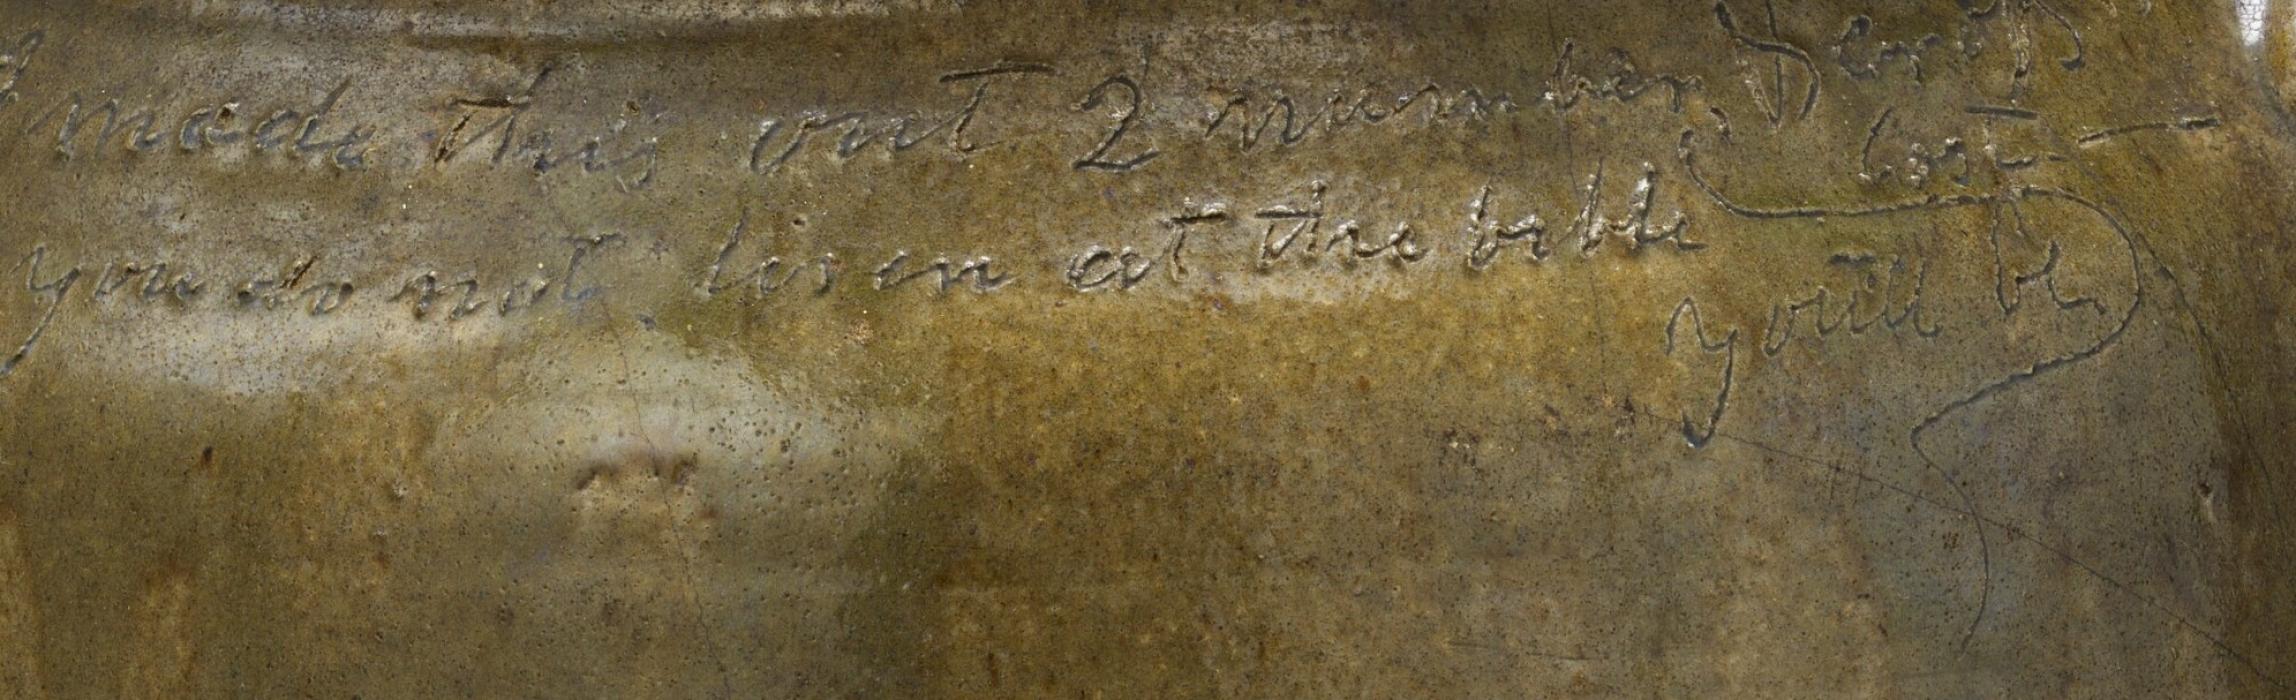 made this out 2 number
you do not lisen at the bible
you'll be
lost —